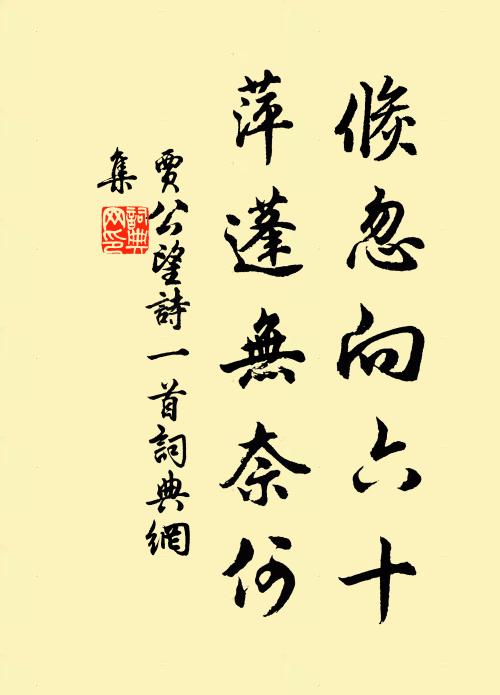 倏忽向六十
萍蓬無奈何
賈公望詩一首詞典網
集
詞典网印